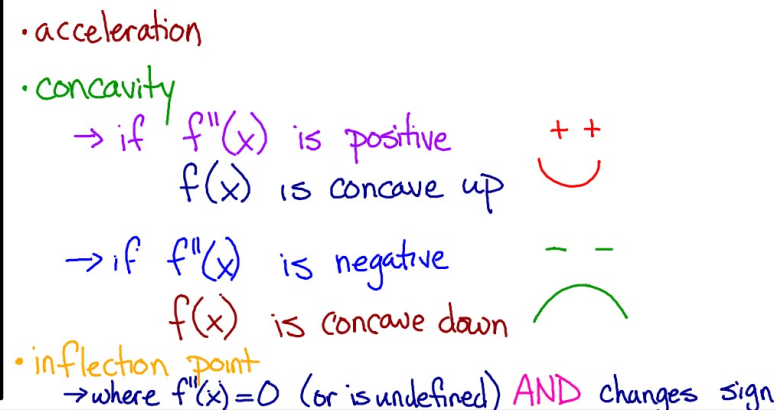 • acceleration
• concavity
→ if f"(x) is positive
f(x) is concave up
→ if f"(x) is negative
f(x) is concave down
• inflection point
→ where f"(x) = 0 (or is undefined) AND changes sign